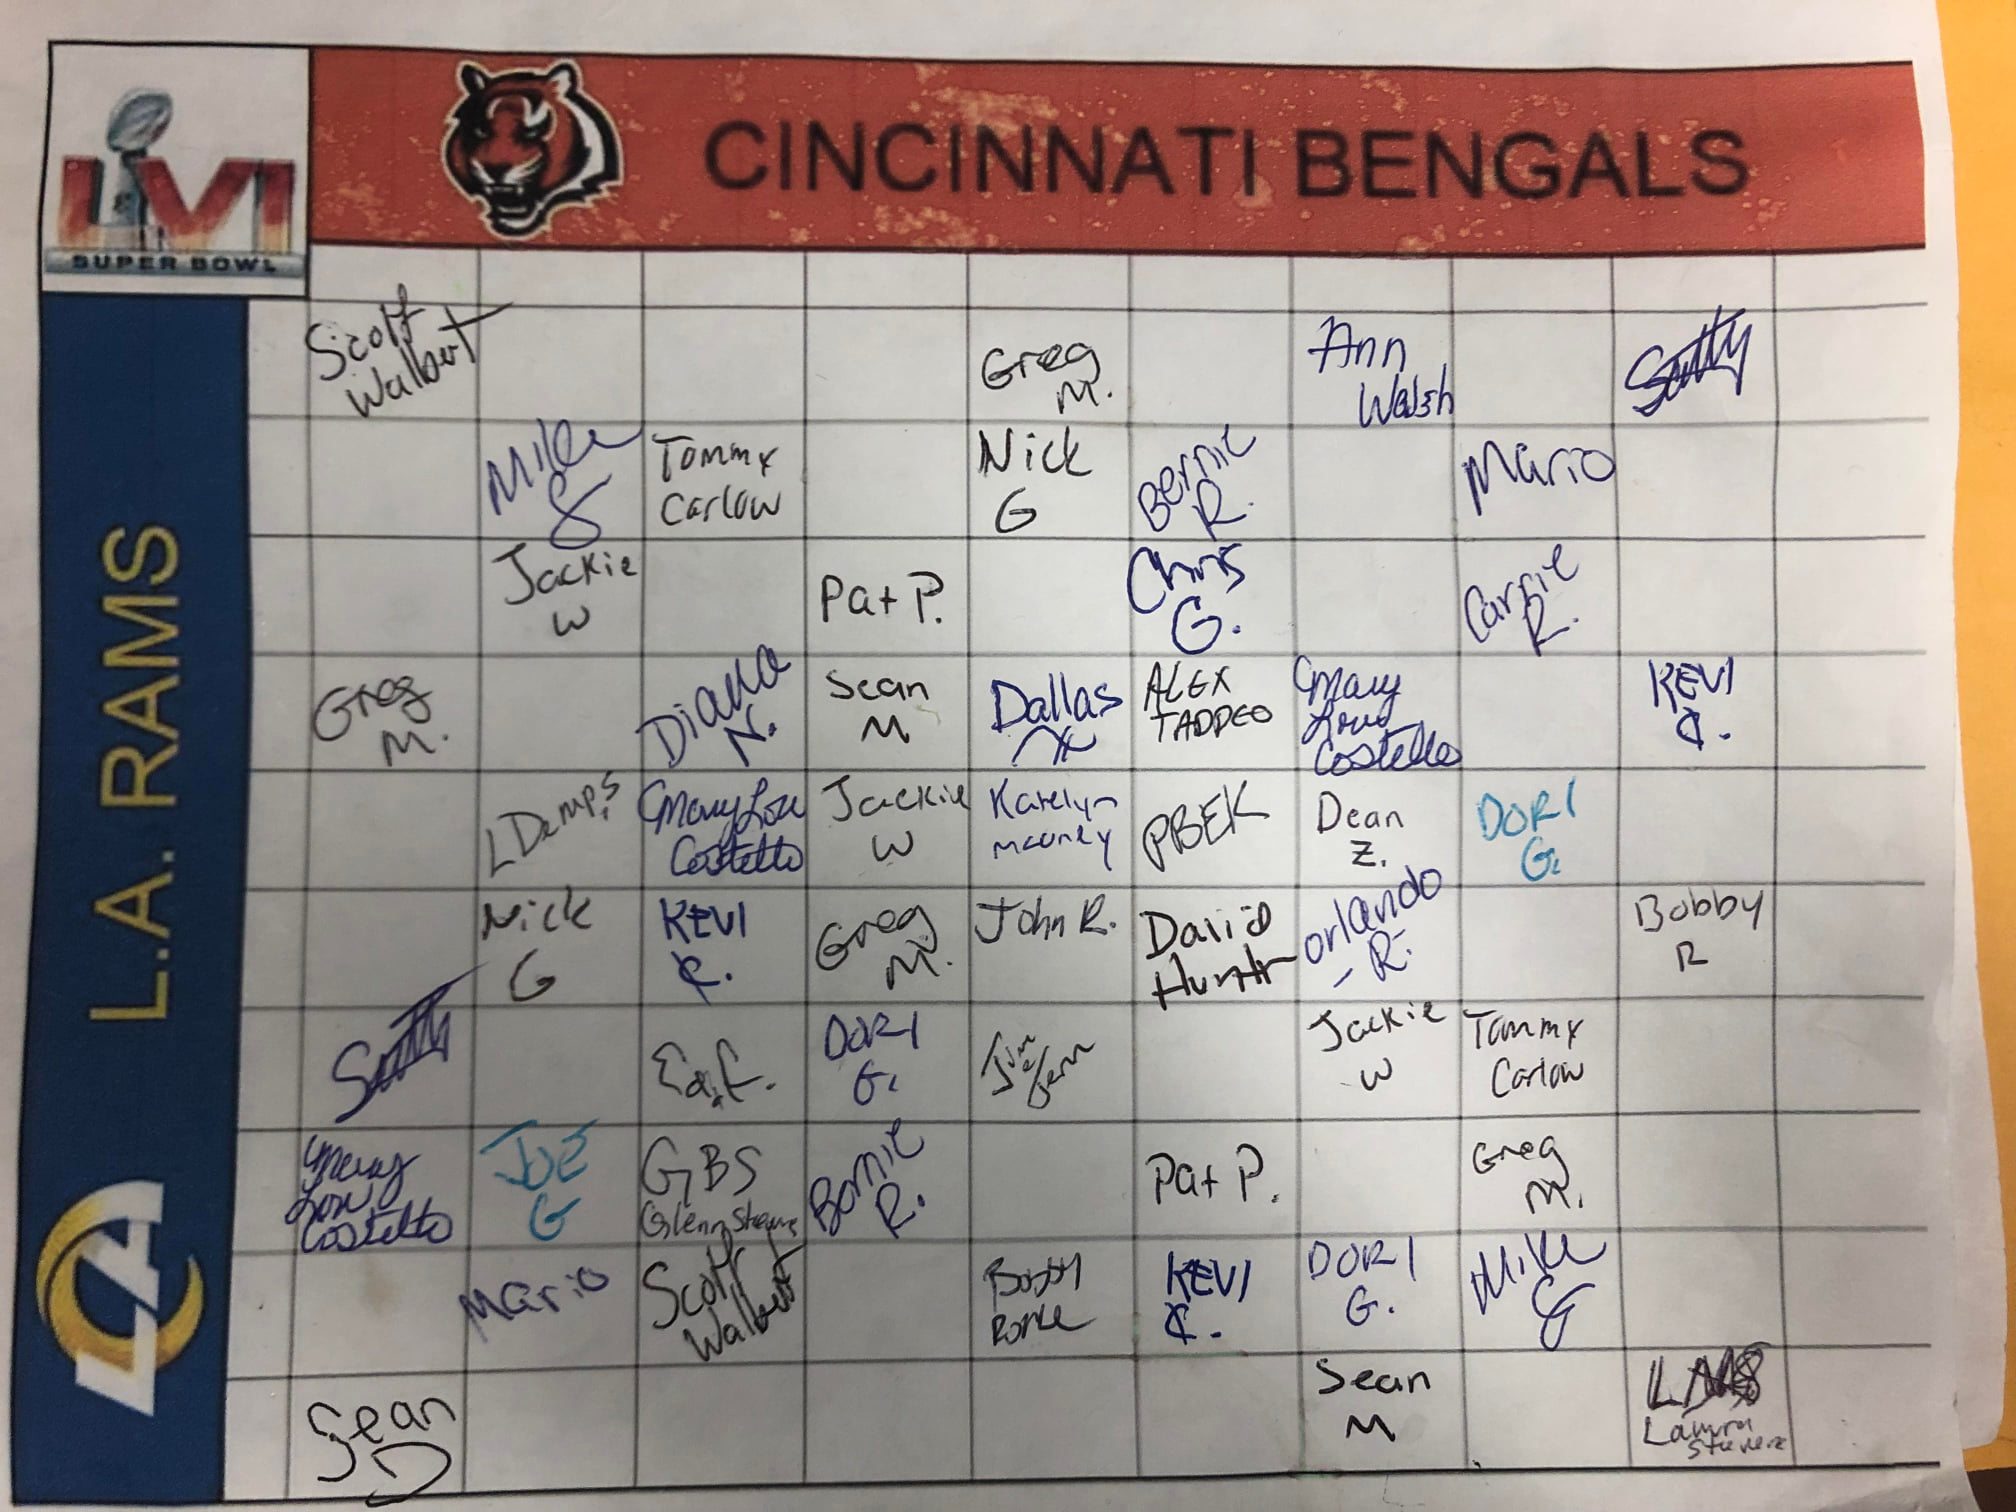 CINCINNATI BENGALS
LVI
SUPER BOWL
L.A. RAMS
LA
Scott Walbert
Greg M.
Ann Walsh
Mike G
Tommy Carlow
Nick G
Bernie R.
Mario
Jackie W
Pat P.
Chris G.
Carrie R.
Greg M.
Diana N.
Sean M
Dallas
ALEX TADDEO
Mary Lou Costello
KEVI C.
L Demps
Mary Lou Costello
Jackie W
Katelyn mooney
PBEK
Dean Z.
DORI G.
Nick G
KEVI C.
Greg M.
John R.
David Hunt
Orlando R.
Bobby R
Ed.
DORI G.
Jim
Jackie W
Tommy Carlow
Mary Lou Costello
JOE G
GBS
Glenn
Bernie R.
Pat P.
Greg M.
Mario
Scott Walbert
KEVI C.
DORI G.
Mike G
Sean D
Sean M